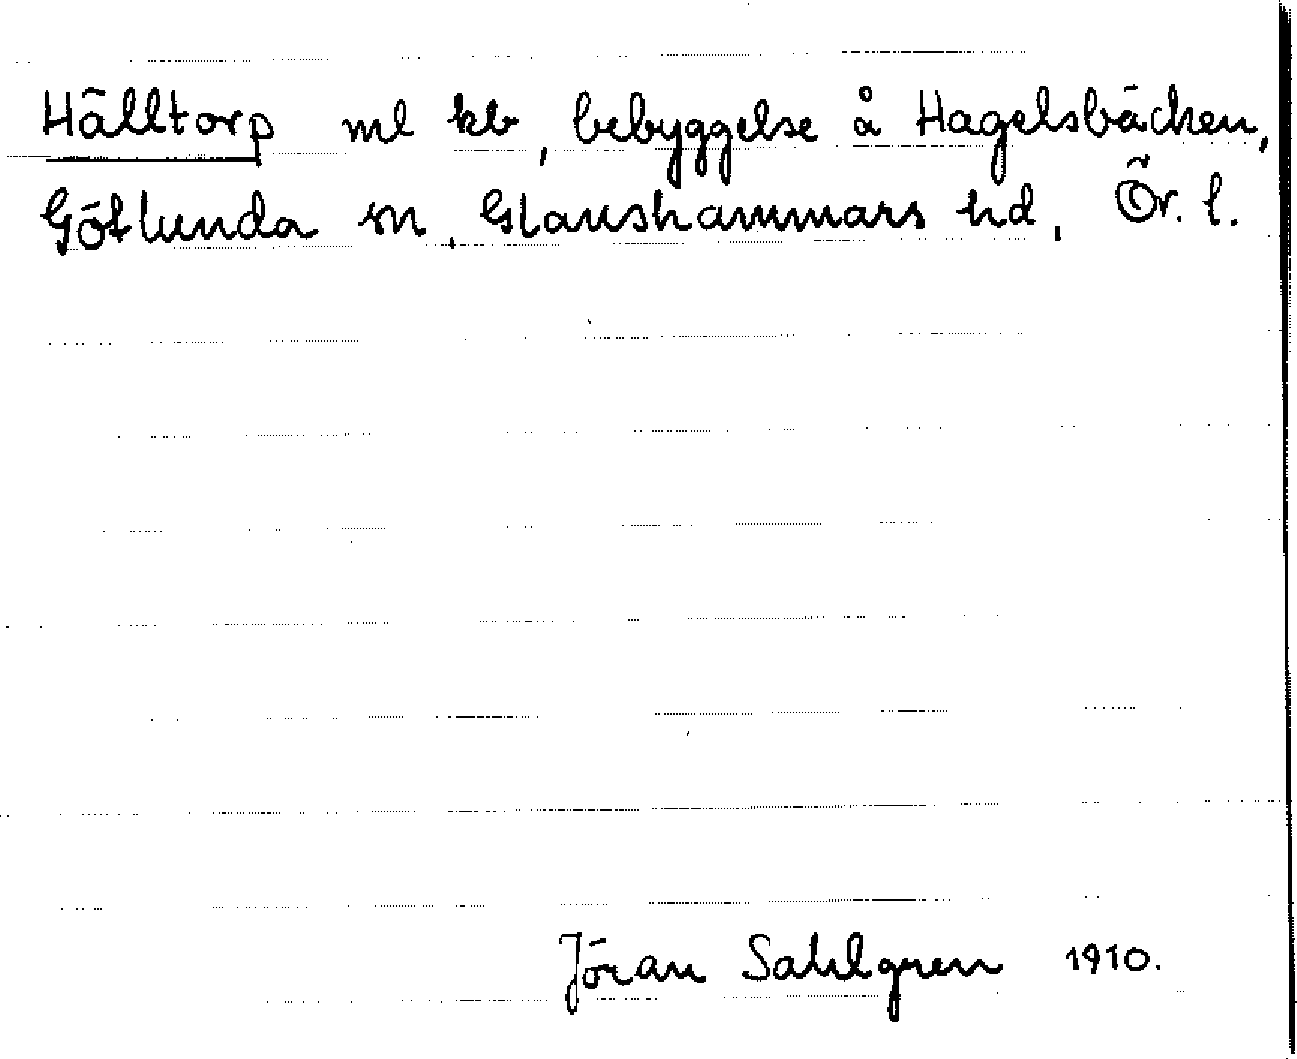 Hälltorp ml kb, bebyggelse å Hagelsbäcken,
Götlunda sn, Glanshammars hd, Ör. l.
Jöran Sahlgren 1910.